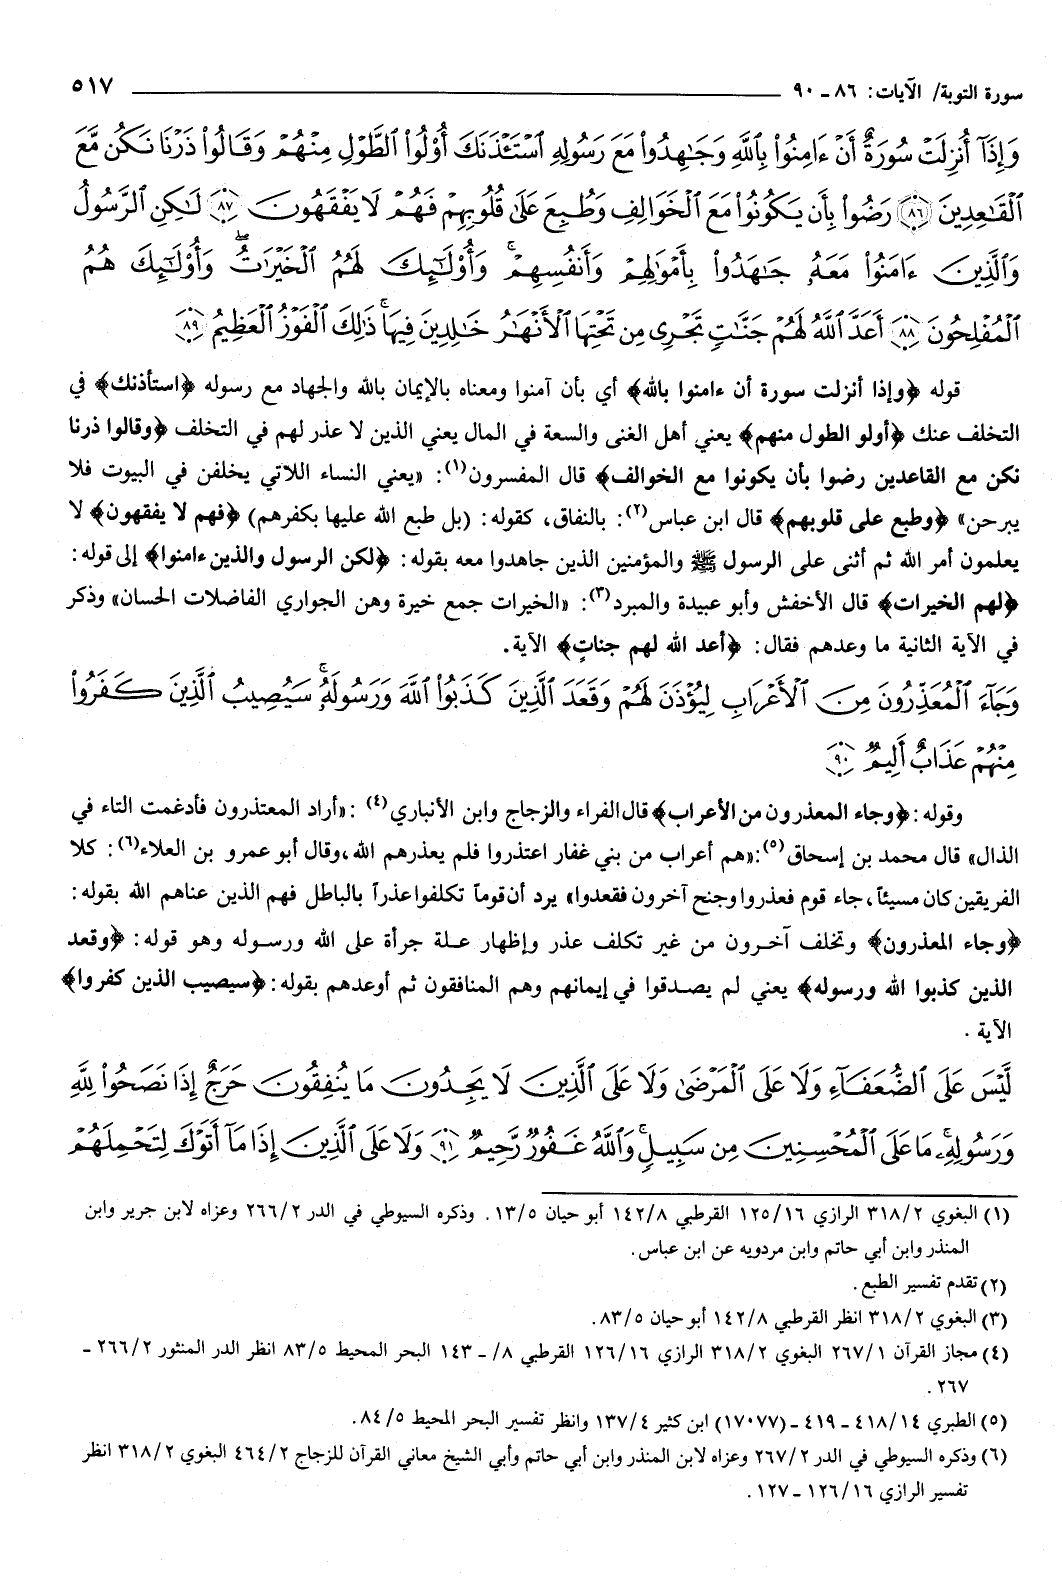 سورة التوبة/ الآيات: ٨٦ ـ ٩٠ ٥١٧
وَإِذَآ أُنزِلَتْ سُورَةٌ أَنْ ءَامِنُوا۟ بِٱللَّهِ وَجَٰهِدُوا۟ مَعَ رَسُولِهِ ٱسْتَـْٔذَنَكَ أُو۟لُوا۟ ٱلطَّوْلِ مِنْهُمْ وَقَالُوا۟ ذَرْنَا نَكُن مَّعَ
ٱلْقَٰعِدِينَ ﴿٨٦﴾ رَضُوا۟ بِأَن يَكُونُوا۟ مَعَ ٱلْخَوَالِفِ وَطُبِعَ عَلَىٰ قُلُوبِهِمْ فَهُمْ لَا يَفْقَهُونَ ﴿٨٧﴾ لَٰكِنِ ٱلرَّسُولُ
وَٱلَّذِينَ ءَامَنُوا۟ مَعَهُۥ جَٰهَدُوا۟ بِأَمْوَٰلِهِمْ وَأَنفُسِهِمْ ۚ وَأُو۟لَٰٓئِكَ لَهُمُ ٱلْخَيْرَٰتُ ۖ وَأُو۟لَٰٓئِكَ هُمُ
ٱلْمُفْلِحُونَ ﴿٨٨﴾ أَعَدَّ ٱللَّهُ لَهُمْ جَنَّٰتٍ تَجْرِى مِن تَحْتِهَا ٱلْأَنْهَٰرُ خَٰلِدِينَ فِيهَا ۚ ذَٰلِكَ ٱلْفَوْزُ ٱلْعَظِيمُ ﴿٨٩﴾
قوله ﴿وإذا أنزلت سورة أن ءامنوا بالله﴾ أي بأن آمنوا ومعناه بالإيمان بالله والجهاد مع رسوله ﴿استأذنك﴾ في
التخلف عنك ﴿أولو الطول منهم﴾ يعني أهل الغنى والسعة في المال يعني الذين لا عذر لهم في التخلف ﴿وقالوا ذرنا
نكن مع القاعدين رضوا بأن يكونوا مع الخوالف﴾ قال المفسرون(١): «يعني النساء اللاتي يخلفن في البيوت فلا
يبرحن» ﴿وطبع على قلوبهم﴾ قال ابن عباس(٢): بالنفاق، كقوله: (بل طبع الله عليها بكفرهم) ﴿فهم لا يفقهون﴾ لا
يعلمون أمر الله ثم أثنى على الرسول ﷺ والمؤمنين الذين جاهدوا معه بقوله: ﴿لكن الرسول والذين ءامنوا﴾ إلى قوله:
﴿لهم الخيرات﴾ قال الأخفش وأبو عبيدة والمبرد(٣): «الخيرات جمع خيرة وهن الجواري الفاضلات الحسان» وذكر
في الآية الثانية ما وعدهم فقال: ﴿أعد الله لهم جناتٍ﴾ الآية.
وَجَآءَ ٱلْمُعَذِّرُونَ مِنَ ٱلْأَعْرَابِ لِيُؤْذَنَ لَهُمْ وَقَعَدَ ٱلَّذِينَ كَذَبُوا۟ ٱللَّهَ وَرَسُولَهُۥ ۚ سَيُصِيبُ ٱلَّذِينَ كَفَرُوا۟
مِنْهُمْ عَذَابٌ أَلِيمٌ ﴿٩٠﴾
وقوله: ﴿وجاء المعذرون من الأعراب﴾ قال الفراء والزجاج وابن الأنباري(٤): «أراد المعتذرون فأدغمت التاء في
الذال» قال محمد بن إسحاق(٥): «هم أعراب من بني غفار اعتذروا فلم يعذرهم الله، وقال أبو عمرو بن العلاء(٦): كلا
الفريقين كان مسيئاً، جاء قوم فعذروا وجنح آخرون فقعدوا» يرد أن قوماً تكلفوا عذراً بالباطل فهم الذين عناهم الله بقوله:
﴿وجاء المعذرون﴾ وتخلف آخرون من غير تكلف عذر وإظهار علة جرأة على الله ورسوله وهو قوله: ﴿وقعد
الذين كذبوا الله ورسوله﴾ يعني لم يصدقوا في إيمانهم وهم المنافقون ثم أوعدهم بقوله: ﴿سيصيب الذين كفروا﴾
الآية.
لَّيْسَ عَلَى ٱلضُّعَفَآءِ وَلَا عَلَى ٱلْمَرْضَىٰ وَلَا عَلَى ٱلَّذِينَ لَا يَجِدُونَ مَا يُنفِقُونَ حَرَجٌ إِذَا نَصَحُوا۟ لِلَّهِ
وَرَسُولِهِۦ ۚ مَا عَلَى ٱلْمُحْسِنِينَ مِن سَبِيلٍ ۚ وَٱللَّهُ غَفُورٌ رَّحِيمٌ ﴿٩١﴾ وَلَا عَلَى ٱلَّذِينَ إِذَا مَآ أَتَوْكَ لِتَحْمِلَهُمْ
(١) البغوي ٣١٨/٢ الرازي ١٢٥/١٦ القرطبي ١٤٢/٨ أبو حيان ١٣/٥. وذكره السيوطي في الدر ٢٦٦/٢ وعزاه لابن جرير وابن
المنذر وابن أبي حاتم وابن مردويه عن ابن عباس.
(٢) تقدم تفسير الطبع.
(٣) البغوي ٣١٨/٢ انظر القرطبي ١٤٢/٨ أبو حيان ٨٣/٥.
(٤) مجاز القرآن ٢٦٧/١ البغوي ٣١٨/٢ الرازي ١٢٦/١٦ القرطبي ٨/ ـ ١٤٣ البحر المحيط ٨٣/٥ انظر الدر المنثور ٢٦٦/٢ ـ
٢٦٧.
(٥) الطبري ٤١٨/١٤ ـ ٤١٩ ـ (١٧٠٧٧) ابن كثير ١٣٧/٤ وانظر تفسير البحر المحيط ٨٤/٥.
(٦) وذكره السيوطي في الدر ٢٦٧/٢ وعزاه لابن المنذر وابن أبي حاتم وأبي الشيخ معاني القرآن للزجاج ٤٦٤/٢ البغوي ٣١٨/٢ انظر
تفسير الرازي ١٢٦/١٦ ـ ١٢٧.